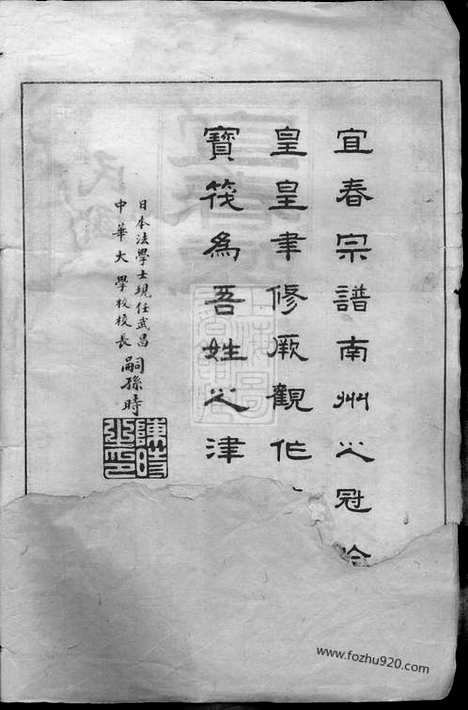 宜春宗譜南州之冠
皇皇聿修厥觀作
寶筏為吾姓之津
日本法學士現任武昌
中華大學校校長
嗣孫時
陳時之印
www.fozhu920.com